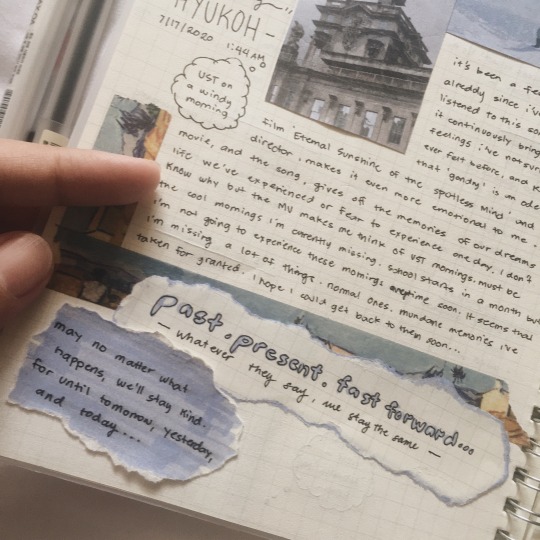 HYUKOH -
7/17/2020 1:44 AM
UST on
a windy
morning
it's been a
already since i've
listened to this
it continuously
feelings i've not
ever felt before, and
that 'gondry' is an ode
film 'Eternal Sunshine of the Spotless Mind' and
director, makes it even more emotional to me.
movie, and the song, gives off the memories of our dreams
life we've experienced or fear to experience one day. i don't
know why but the MV makes me think of UST mornings. must be
the cool mornings i'm currently missing. school starts in a month but
i'm not going to experience these mornings anytime soon. it seems that
i'm missing a lot of things. normal ones. mundane memories i've
taken for granted. i hope i could get back to them soon...
Past. present. fast forward...
— whatever they say, we stay the same —
may no matter what
happens, we'll stay kind.
for until tomorrow, yesterday,
and today...